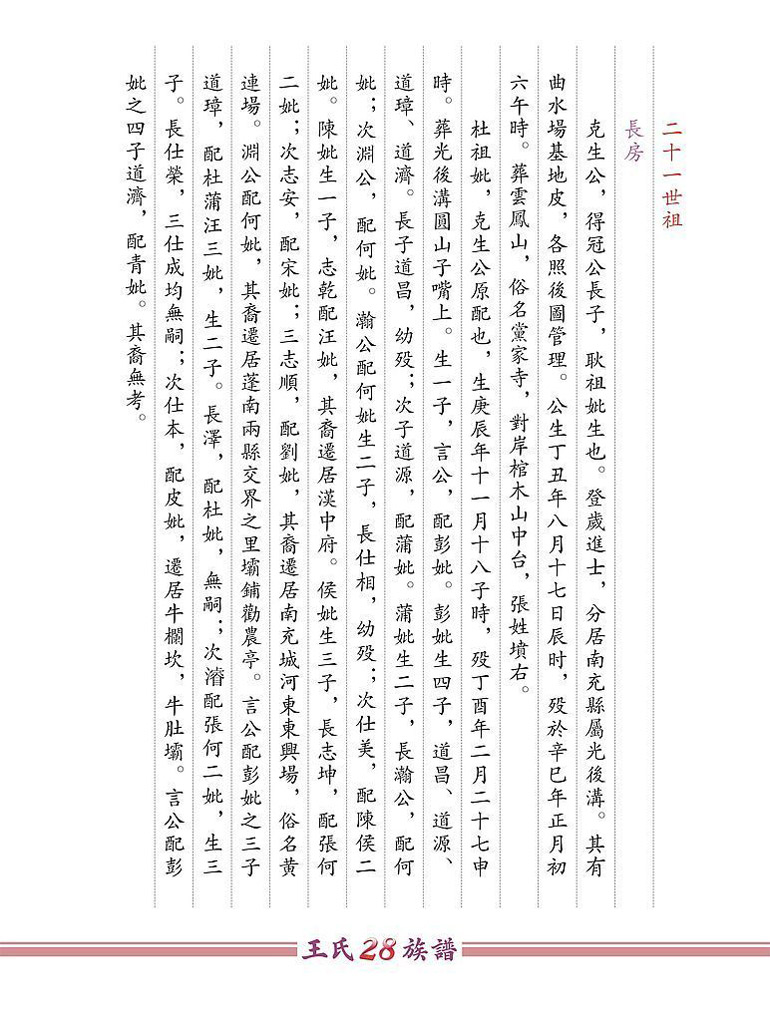 二十一世祖
長房
克生公，得冠公長子，耿祖妣生也。登歲進士，分居南充縣屬光後溝。其有
曲水場基地皮，各照後圖管理。公生丁丑年八月十七日辰时，歿於辛巳年正月初
六午時。葬雲鳳山，俗名黨家寺，對岸棺木山中台，張姓墳右。
杜祖妣，克生公原配也，生庚辰年十一月十八子時，歿丁酉年二月二十七申
時。葬光後溝圓山子嘴上。生一子，言公，配彭妣。彭妣生四子，道昌、道源、
道璋、道濟。長子道昌，幼歿；次子道源，配蒲妣。蒲妣生二子，長瀚公，配何
妣；次淵公，配何妣。瀚公配何妣生二子，長仕相，幼歿；次仕美，配陳侯二
妣。陳妣生一子，志乾配汪妣，其裔遷居漢中府。侯妣生三子，長志坤，配張何
二妣；次志安，配宋妣；三志順，配劉妣，其裔遷居南充城河東東興場，俗名黄
連場。淵公配何妣，其裔遷居蓬南兩縣交界之里壩鋪勸農亭。言公配彭妣之三子
道璋，配杜蒲汪三妣，生二子。長澤，配杜妣，無嗣；次濬配張何二妣，生三
子。長仕榮，三仕成均無嗣；次仕本，配皮妣，遷居牛欄坎，牛肚壩。言公配彭
妣之四子道濟，配青妣。其裔無考。
王氏28族譜